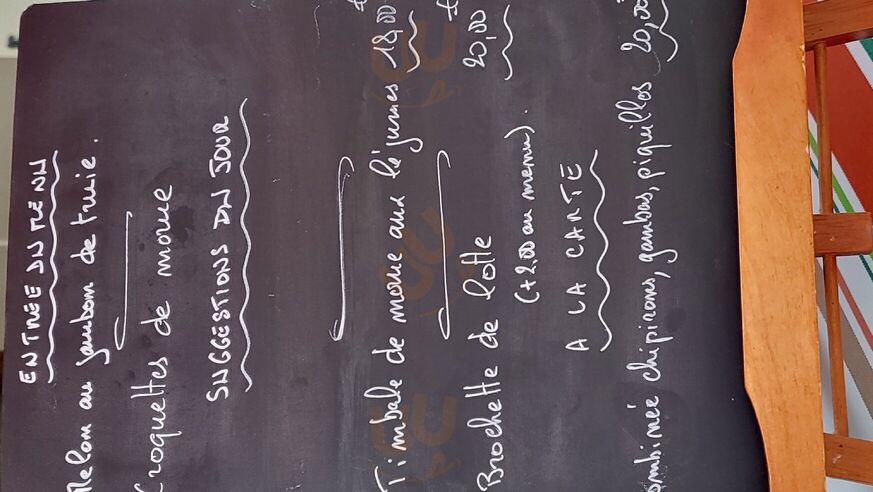 ENTREE DU MENU
Melon au jambon de truie.
Croquettes de morue
SUGGESTIONS DU JOUR
Timbale de morue aux légumes 18,00 €
Brochette de lotte 20,00 €
(+2.00 au menu).
A LA CARTE
ombinée chipirons, gambas, piquillos 20,00